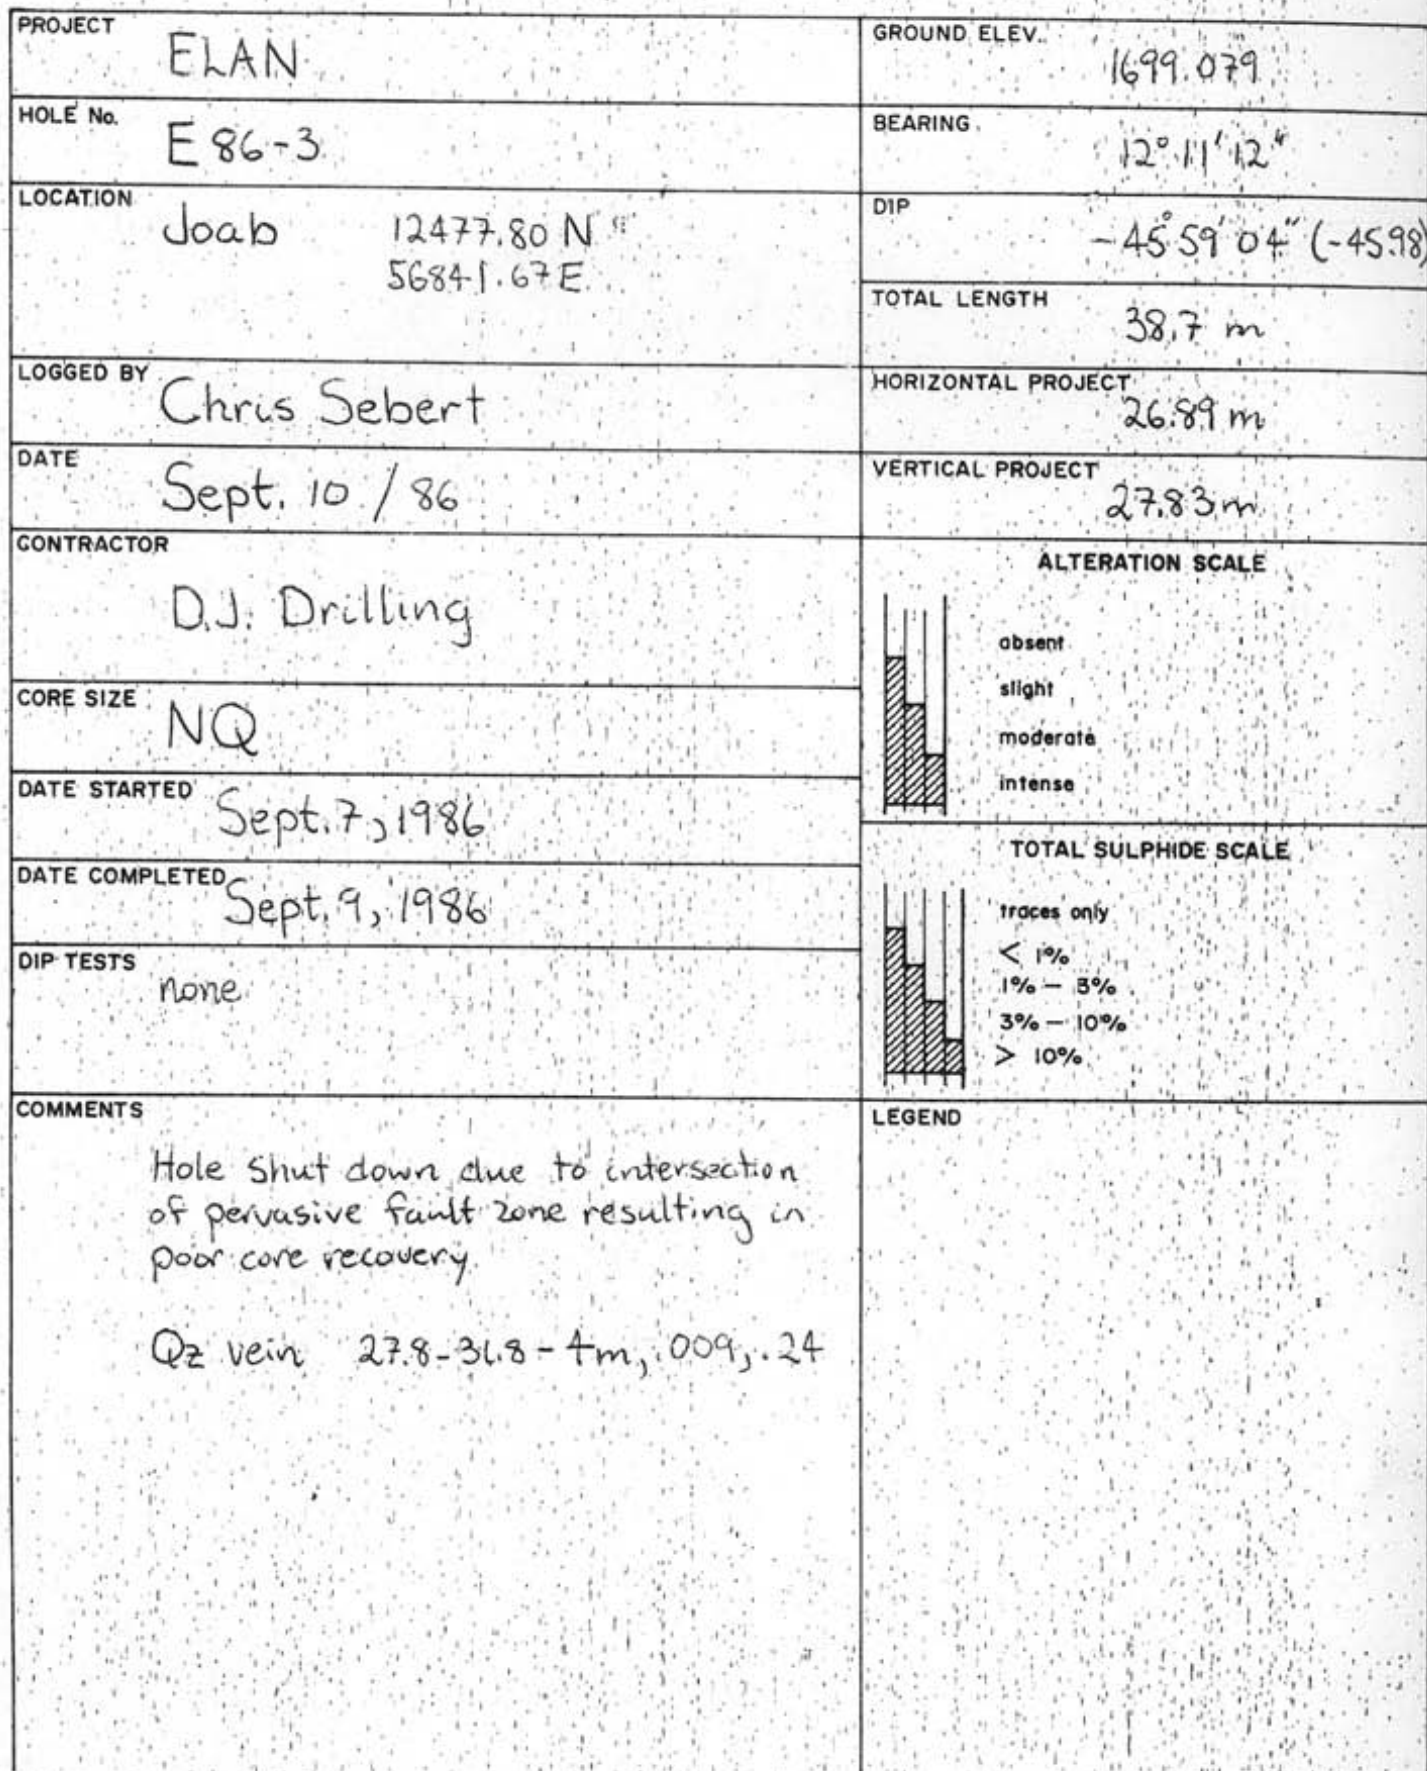 PROJECT
ELAN
HOLE No.
E 86-3
LOCATION
Joab 12477.80 N
56841.67 E
LOGGED BY
Chris Sebert
DATE
Sept. 10 / 86
CONTRACTOR
D.J. Drilling
CORE SIZE
NQ
DATE STARTED
Sept. 7, 1986
DATE COMPLETED
Sept. 9, 1986
DIP TESTS
none
COMMENTS
Hole Shut down due to intersection
of pervasive fault zone resulting in
poor core recovery.
Qz vein 27.8-31.8 - 4m, .009, .24
GROUND ELEV.
1699.079
BEARING
12° 11' 12"
DIP
-45° 59' 04" (-45.98)
TOTAL LENGTH
38.7 m
HORIZONTAL PROJECT
26.89 m
VERTICAL PROJECT
27.83 m
ALTERATION SCALE
absent
slight
moderate
intense
TOTAL SULPHIDE SCALE
traces only
< 1%
1% – 3%
3% – 10%
> 10%
LEGEND